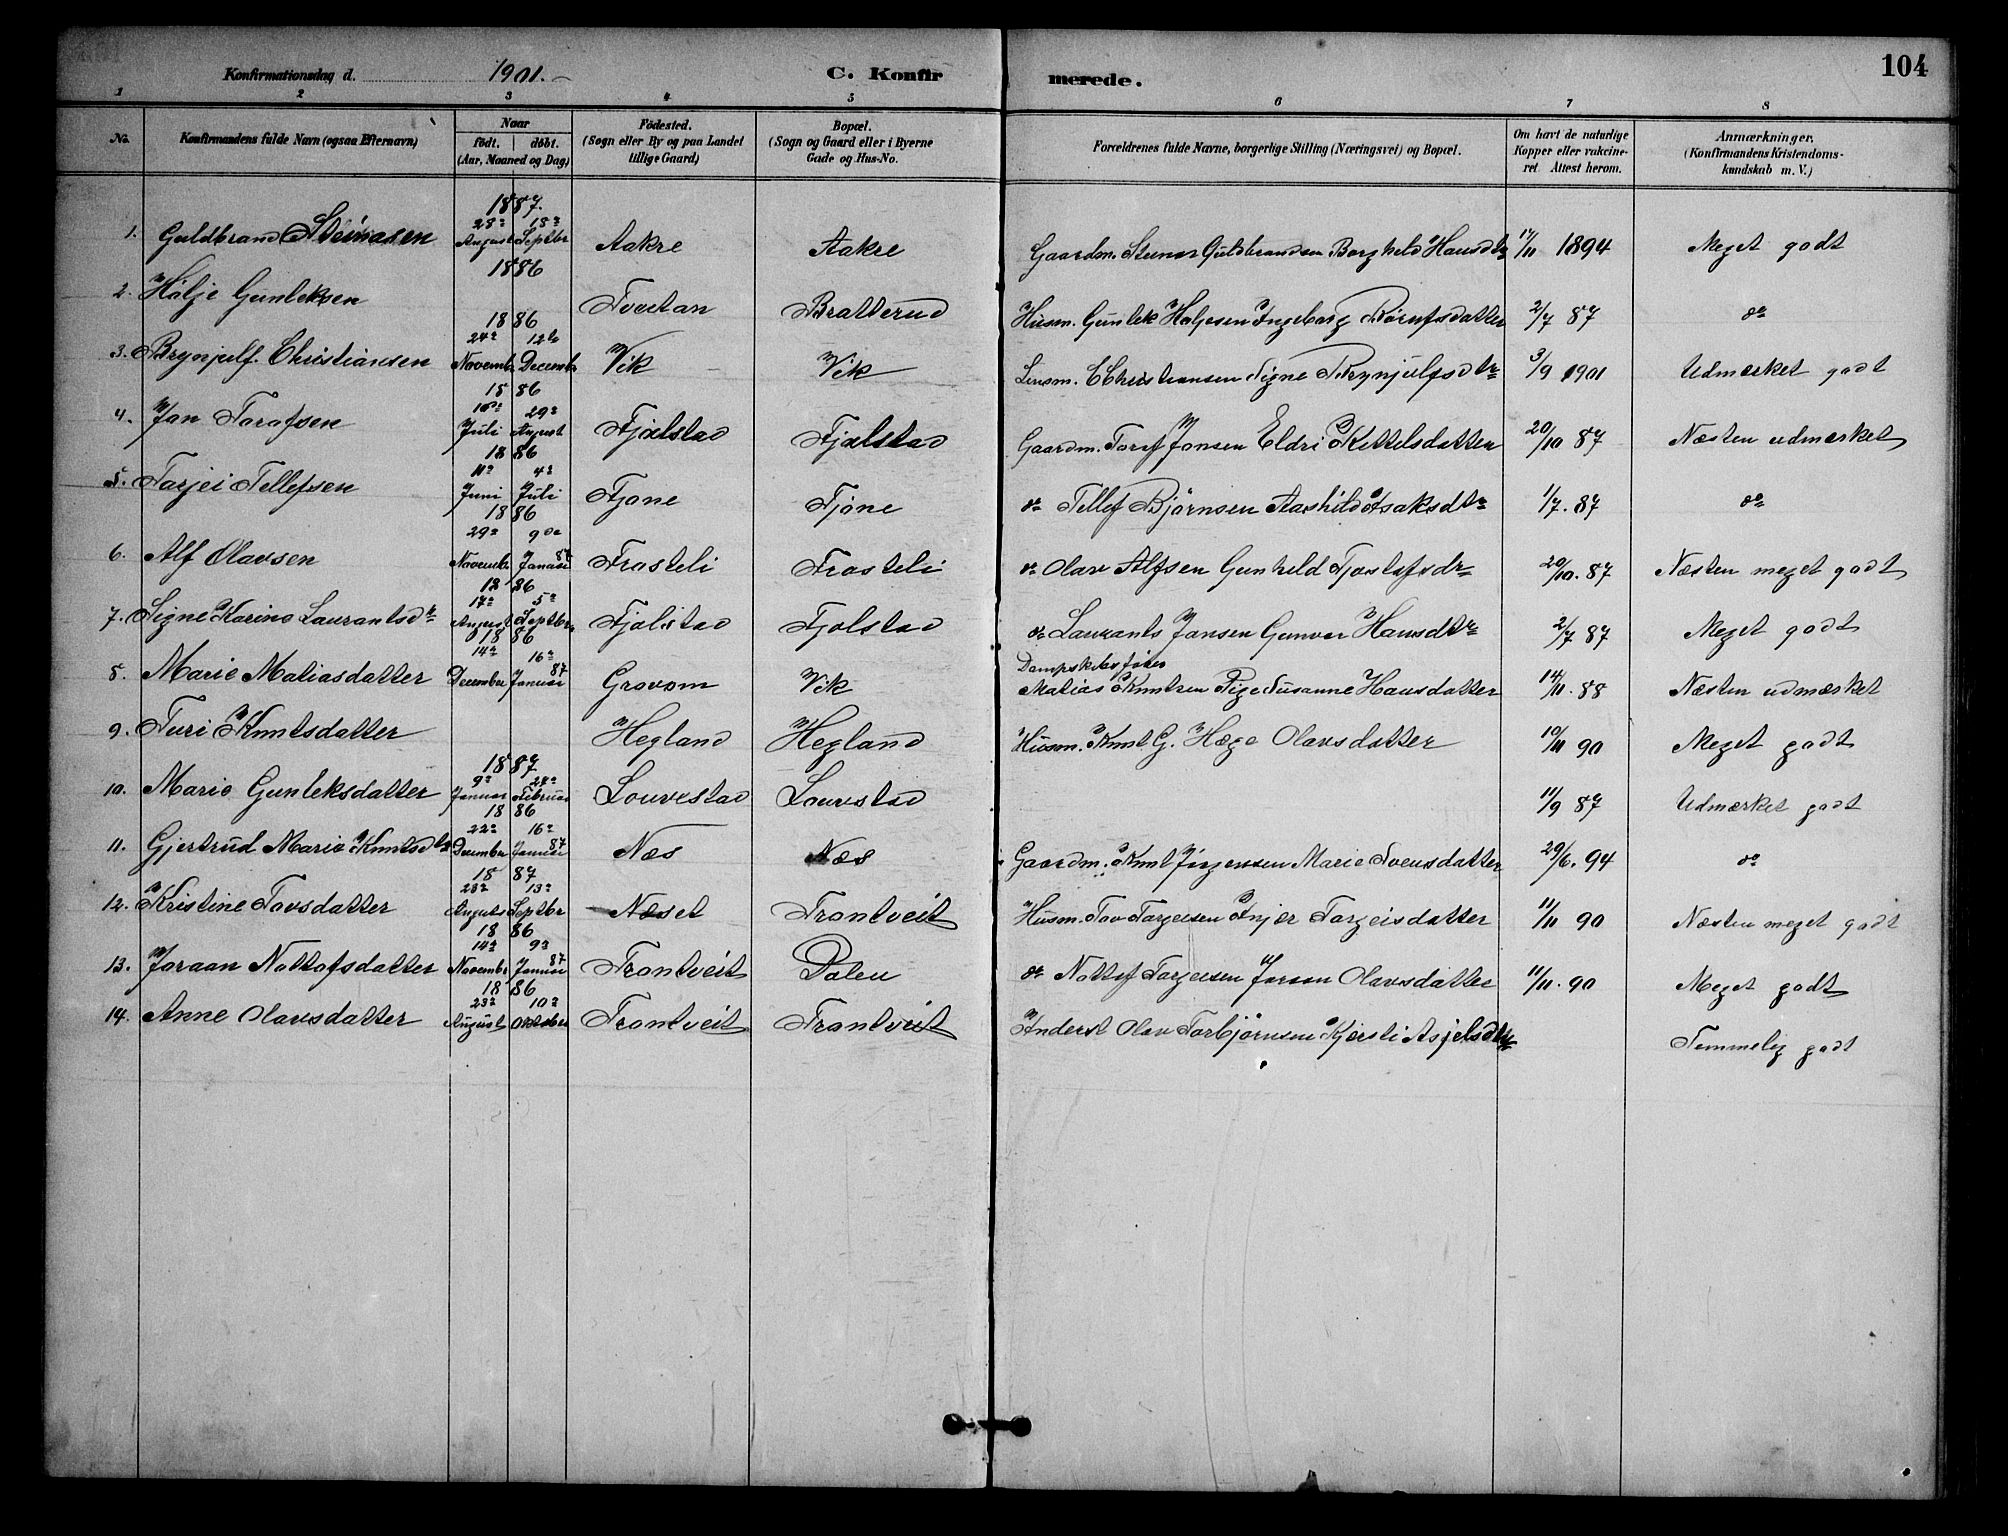 104
Konfirmationsdag d. 1901.
C. Konfirmerede.
1 2 3 4 5 6 7 8
No. Konfirmandens fulde Navn (ogsaa Efternavn) Naar født. døbt. (Aar, Maaned og Dag) Fødested. (Sogn eller By og paa Landet tillige Gaard) Bopæl. (Sogn og Gaard eller i Byerne Gade og Hus-No. Forældrenes fulde Navne, borgerlige Stilling (Næringsvei) og Bopæl. Om havt de naturlige Kopper eller vakcineret. Attest herom. Anmærkninger. (Konfirmandens Kristendomskundskab m. V.)
1887.
1. Guldbrand Steinasen 28de August 18de Septbr Aakre Aakre Gaardm. Steinar Guldbrandsen Borghild Hansdtr 17/11 1894 Meget godt
1886
2. Halje Gunleksen Tveitan Bratterud Husm. Gunlek Haljesen Ingeborg 2/7 87 do
1886
3. Brynjulf Christiansen 24de Novembr 12te Decembr Vik Vik Lensm. E Christiansen Signe Brynjulfsdtr 3/9 1901 Udmærket godt
1886
4. Jon Torofsen Juli 29de August Fjalstad Fjalstad Gaardm. Torof Jonsen Eldri Kittelsdatter 20/10 87 Næsten udmærket
1886
5. Tarjei Tellefsen 11te Juni 4de Juli Fjone Fjone do Tellef Bjørnsen Aashild Isaksdtr 1/7. 87 do
1886
6. Alf Olavsen 29de Novembr 9de Januar 87 Frosteli Frosteli do Olav Alfsen Gunhild Tjostofsdr 20/10. 87 Næsten meget godt
1886
7. Signe Karine Laurantsdtr 17de August 5te Septbr Fjalistad Fjolstad do Laurants Jansen Gunvor Hansdtr 2/7 87 Meget godt
1886
8. Marie Matiasdatter 14de December 16de Januar 87 Grovom Vik Dampskibsfører Matias Knutsen Pige Susanne Hansdatter 14/11. 88 Næsten udmærket
9. Turi Knutsdatter Hegland Hegland Husm. Knut G. Hæge Olavsdatter 10/11 90 Meget godt
1887
10. Marie Gunleksdatter 9de Januar Februar Lourestad Lourstad 11/9 87 Udmærket godt
1886
11. Gjertrud Marie Knutsdtr 22de December 16de Januar 87 Næs Næs Gaardm. Knut Jørgensen Marie Svensdatter 29/6. 94 do
1887
12. Kristine Tovsdatter 23de Augusts 13de Septbr Næset Trontveit Husm. Tov Targeisen Injer Targeisdatter 11/11 90 Næsten meget godt
1886
13. Joraan Nottofsdatter 14de Novembr 9de Januar 87 Trontveit Dalen do Nottof Targeisen Joraan Olavsdatter 11/11. 90 Meget godt
1886
14. Anne Olavsdatter 23de August 10de Oktober Trontveit Trontveit Inderst Olav Torbjørnsen Kjersti Asjelsdtr Temmelig godt